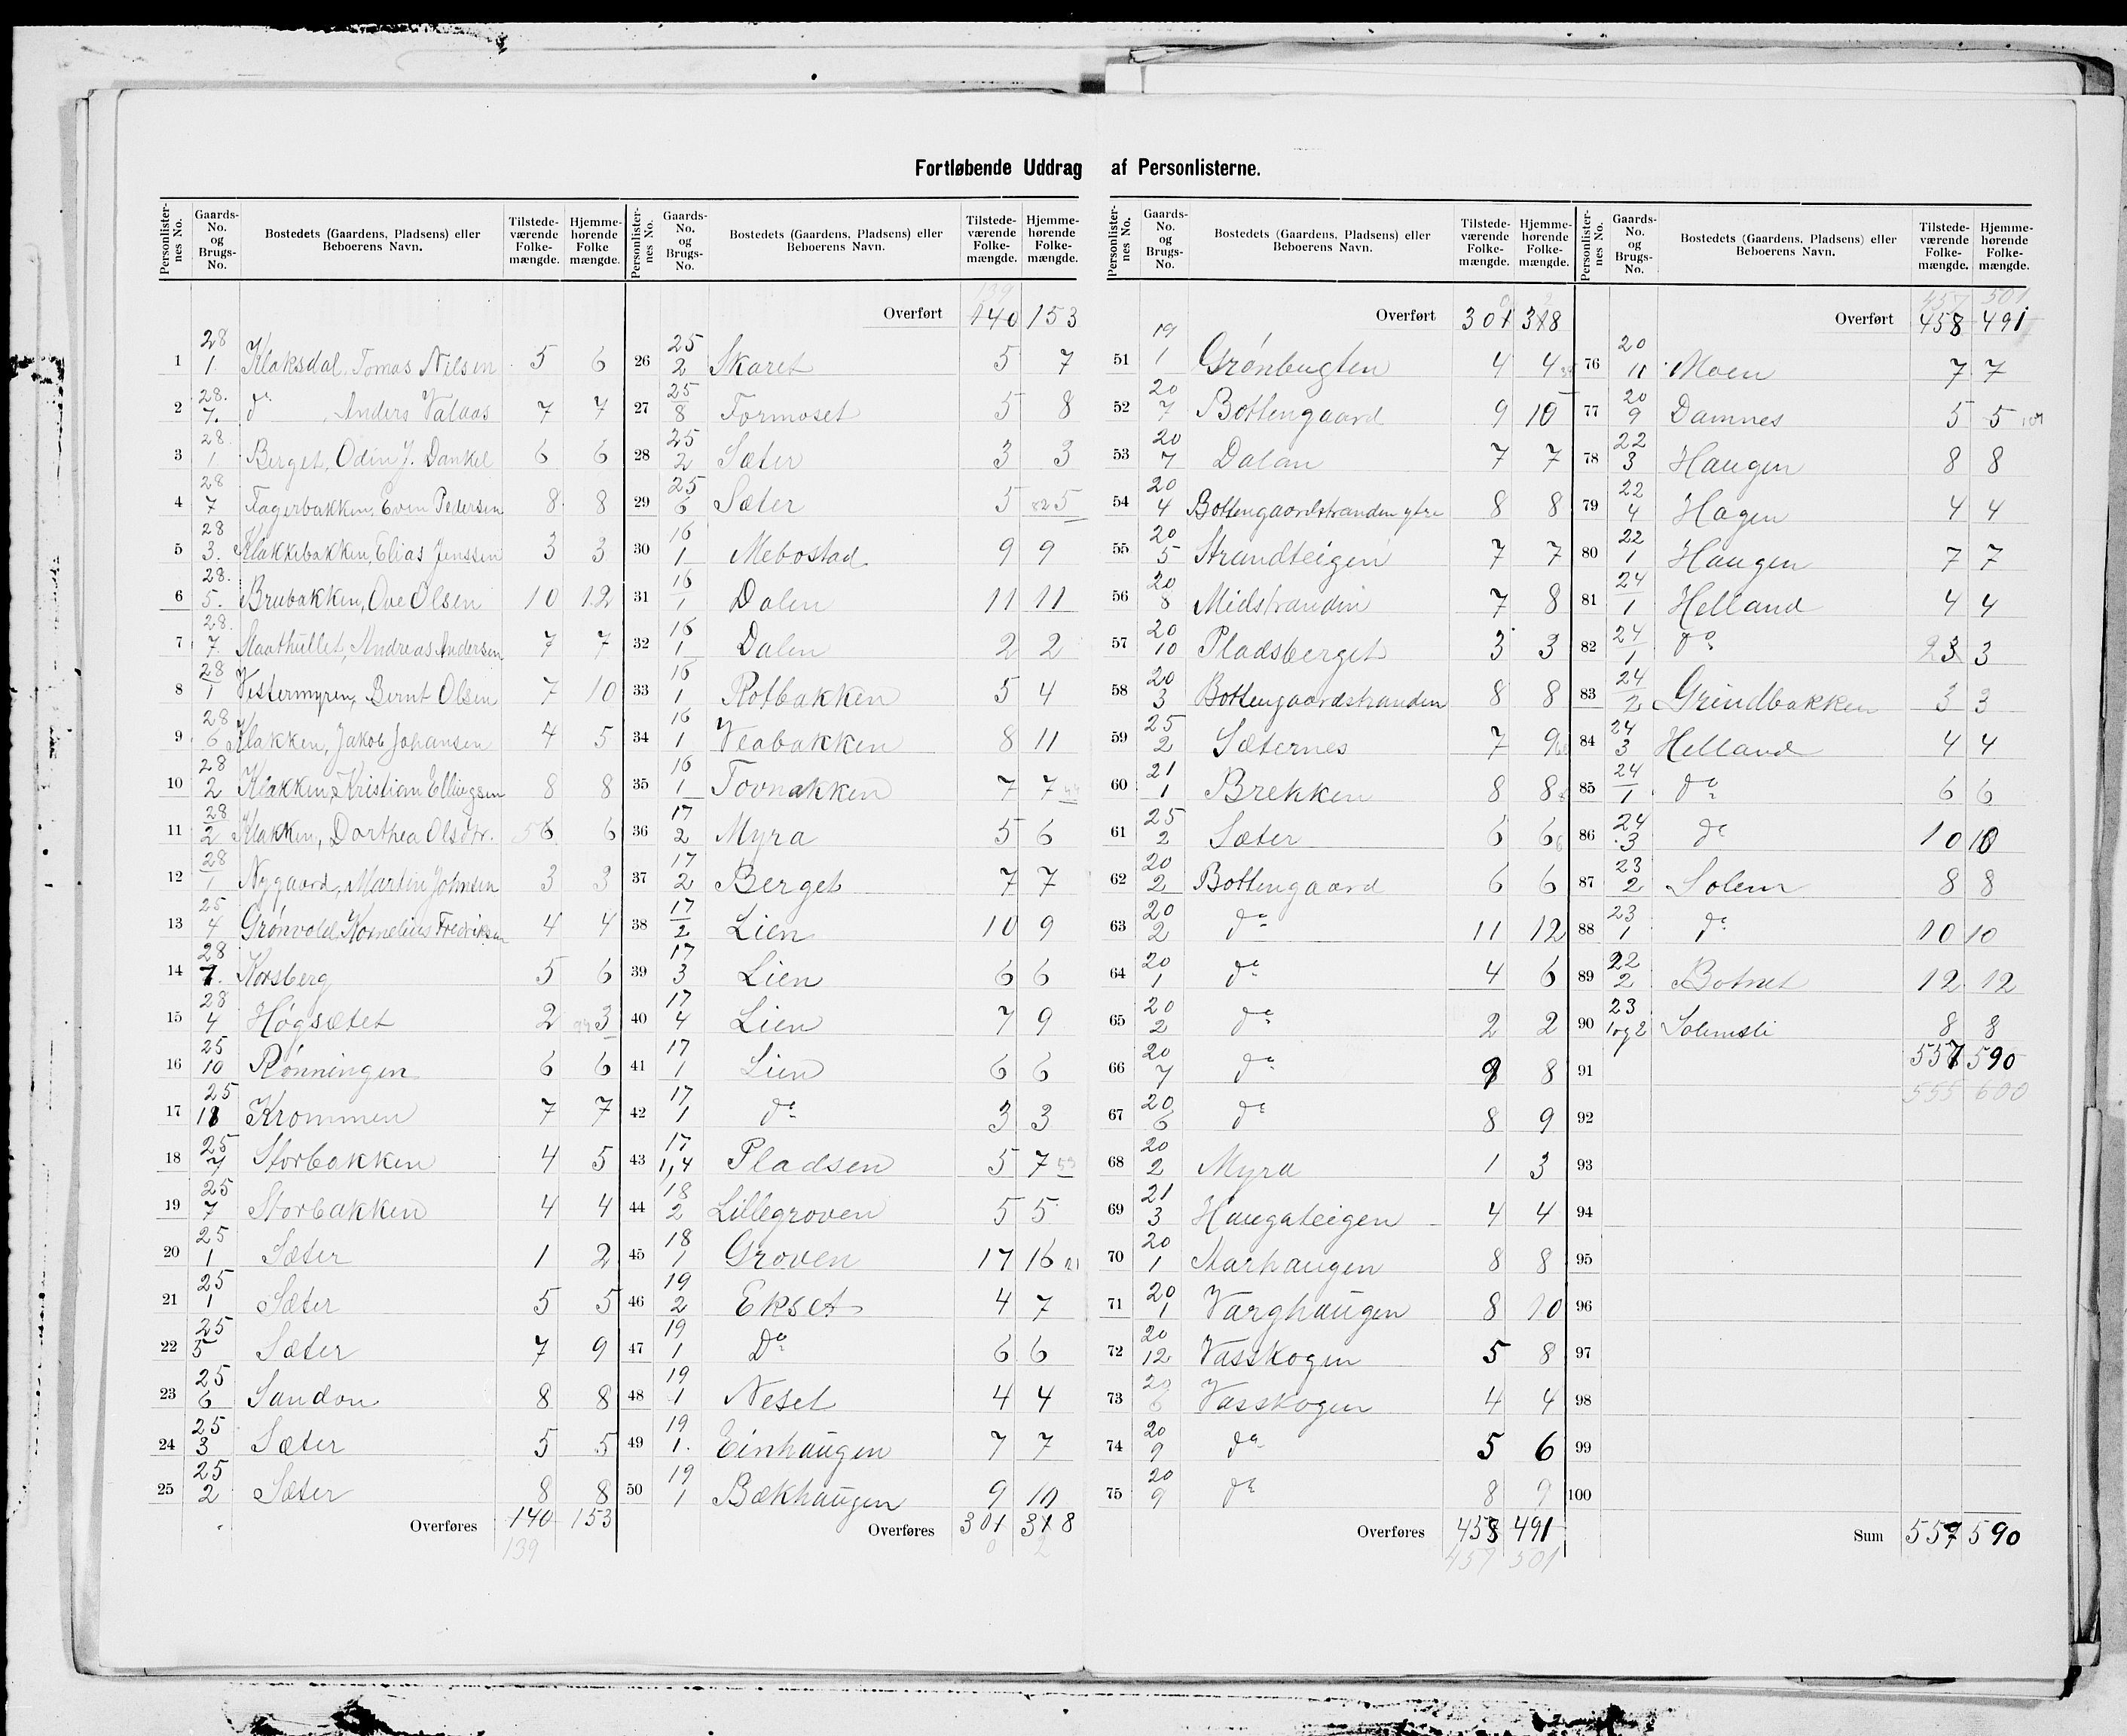 Fortløbende Uddrag af Personlisterne.
Personlisternes No. Gaards-No. og Brugs-No. Bostedets (Gaardens, Pladsens) eller Beboerens Navn. Tilstedeværende Folkemængde. Hjemmehørende Folke mængde.
1 28/1 Klaksdal, Tomas Nilsen 5 6
2 28./7. do , Anders Valaas 7 7
3 28/1 Berget, Odin J. Dankel 6 6
4 28/7 Fagerbakken, Even Pedersen 8 8
5 28/3. Klakkebakken, Elias Jenssen 3 3
6 28./5. Brubakken, Ove Olsen 10 12
7 28./7. Slaathullet, Andreas Andersen 7 7
8 28/1 Vestermyren, Bernt Olsen 7 10
9 28/6 Klakken, Jakob Johansen 4 5
10 28/2 Klakken, Kristian Ellingsen 8 8
11 28/2 Klakken, Dorthea Olsdtr. 56 6
12 28/1 Nygaard, Martin Johnsen 3 3
13 25/4 Grønvold Kornelius Fredriksen 4 4
14 28/7. Korsberg 5 6
15 28/4 Høgsætet 2 3
16 25/10 Rønningen 6 6
17 25/11 Krommen 7 7
18 25/7 Storbakken 4 5
19 25/7 Storbakken 4 4
20 25/1 Sæter 1 2
21 25/1 Sæter 5 5
22 25/5 Sæter 7 9
23 25/6 Sandon 8 8
24 25/3 Sæter 5 5
25 25/2 Sæter 8 8
Overføres 140 153
139
Personlisternes No. Gaards-No. og Brugs-No. Bostedets (Gaardens, Pladsens) eller Beboerens Navn. Tilstedeværende Folkemængde. Hjemmehørende Folkemængde.
139
Overført 140 153
26 25/2 Skaret 5 7
27 25/8 Formoset 5 8
28 25/2 Sæter 3 3
29 25/6 Sæter 5 5
30 16/1 Mebostad 9 9
31 16/1 Dalen 11 11
32 16/1 Dalen 2 2
33 16/1 Rotbakken 5 4
34 16/1 Veabakken 8 11
35 16/1 Tovnakken 7 7
36 17/2 Myra 5 6
37 17/2 Berget 7 7
38 17/2 Lien 10 9
39 17/3 Lien 6 6
40 17/4 Lien 7 9
41 17/1 Lien 6 6
42 17/1 do 3 3
43 17/1,4 Pladsen 5 7 53
44 18/2 Lillegroven 5 5
45 18/1 Groven 17 16 21
46 19/2 Ekset 4 7
47 19/1 Do 6 6
48 19/1 Neset 4 4
49 19/1. Einhaugen 7 7
50 19/1 Bækhaugen 9 10
Overføres 301 318
0 2
Personlisternes No. Gaards-No. og Brugs-No. Bostedets (Gaardens, Pladsens) eller Beboerens Navn. Tilstedeværende Folkemængde. Hjemmehørende Folkemængde.
Overført 301 318
51 19/1 Grønbugten 4 4
52 20/7 Bottengaard 9 10
53 20/7 Dalan 7 7
54 20/4 Bottengaardstranden ytre 8 8
55 20/5 Strandteigen 7 7
56 20/8 Midstranden 7 8
57 20/10 Pladsberget 3 3
58 20/3 Bottengaardstranden 8 8
59 25/2 Sæternes 7 9
60 21/1 Brekken 8 8
61 25/2 Sæter 6 6
62 20/2 Bottengaard 6 6
63 20/2 do 11 12
64 20/1 do 4 6
65 20/2 do 2 2
66 20/7 do 9 8
67 20/6 do 8 9
68 20/2 Myra 1 3
69 21/3 Haugateigen 4 4
70 20/1 Aarhaugen 8 8
71 20/1 Varghaugen 8 10
72 20/12 Vasskogen 5 8
73 20/6 Vasskogen 4 4
74 20/9 do 5 6
75 20/9 do 8 9
Overføres 458 491
457 501
Personlisternes No. Gaards-No. og Brugs-No. Bostedets (Gaardens, Pladsens) eller Beboerens Navn. Tilstedeværende Folkemængde. Hjemmehørende Folkemængde.
457 501
Overført 458 491
76 20/11 Moen 7 7
77 20/9 Damnes 5 5
78 22/3 Haugen 8 8
79 22/4 Hagen 4 4
80 22/1 Haugen 7 7
81 24/1 Helland 4 4
82 24/1 do 23 3
83 24/2 Grindbakken 3 3
84 24/3 Helland 4 4
85 24/1 do 6 6
86 24/3 do 10 10
87 23/2 Solem 8 8
88 23/1 do 10 10
89 22/2 Botnet 12 12
90 23/1og2 Solemsli 8 8
91 557 590
555 600
92
93
94
95
96
97
98
99
100
Sum 557 590